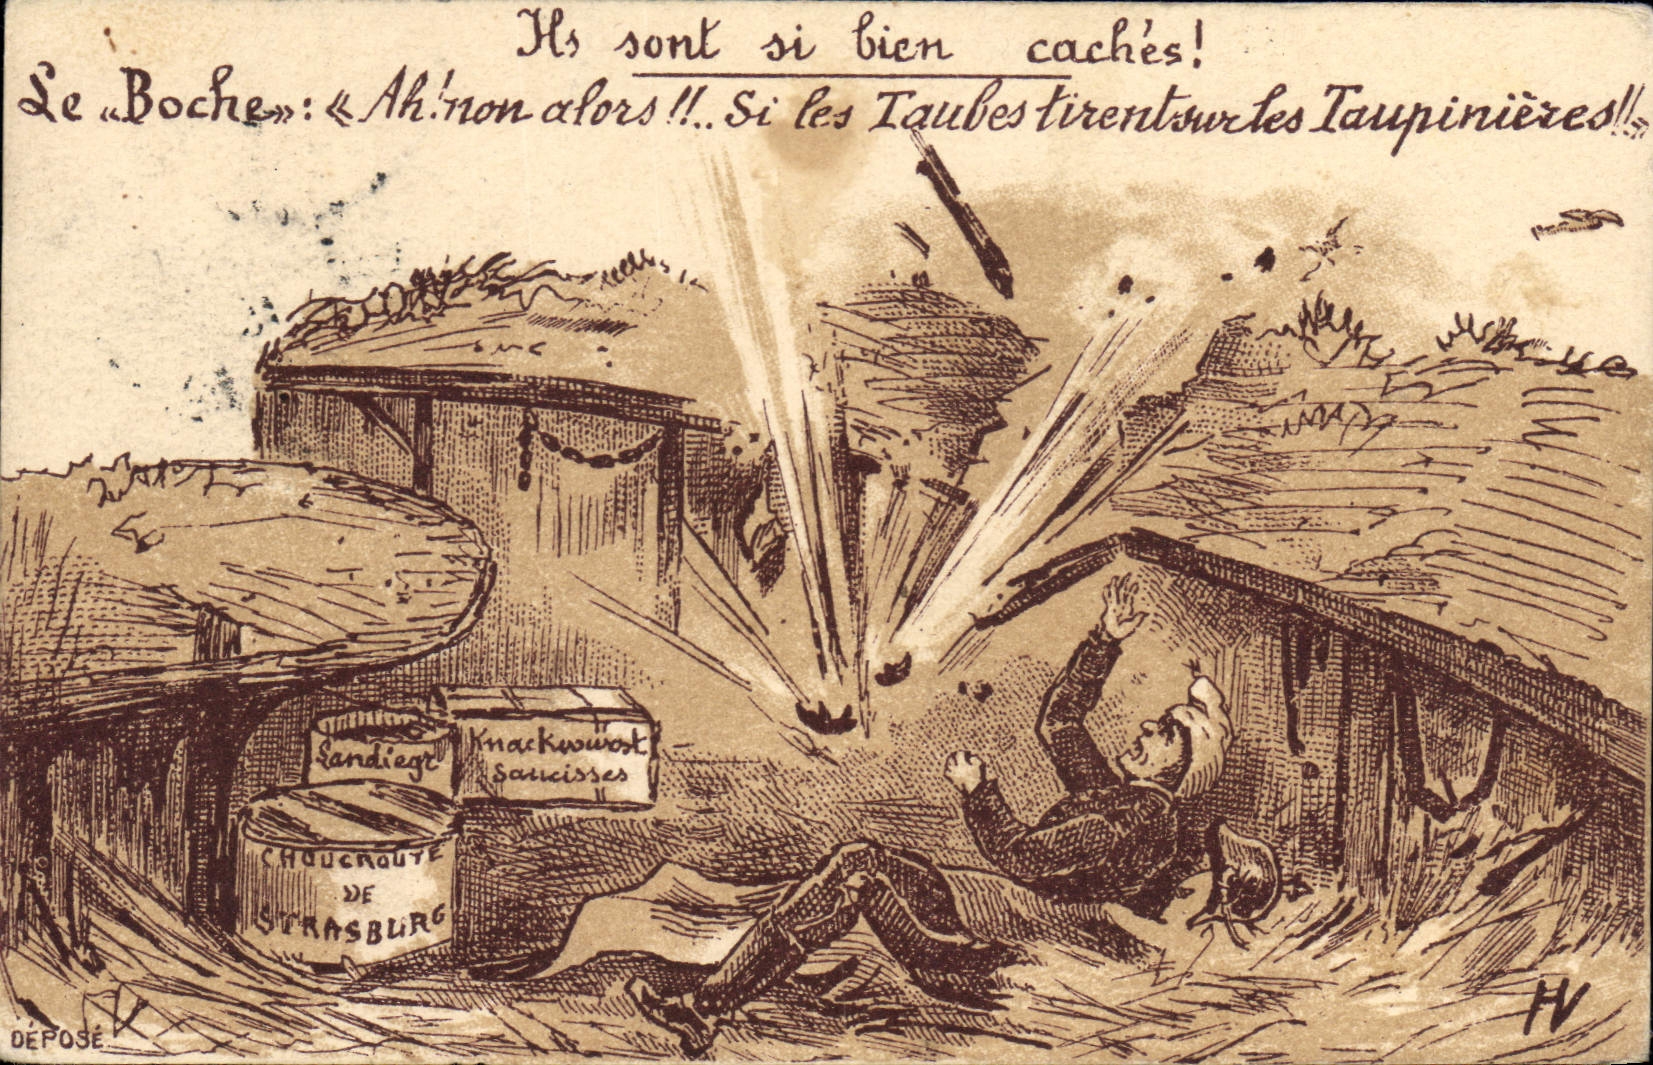 Ils sont si bien cachés!
Le „Boche”: « Ah! non alors!!.. Si les Taubes tirent sur les Taupinières!!»
Landiegr
Knackwurst
Saucisses
CHOUCROUTE
DE
STRASBURG
HV
DÉPOSÉ